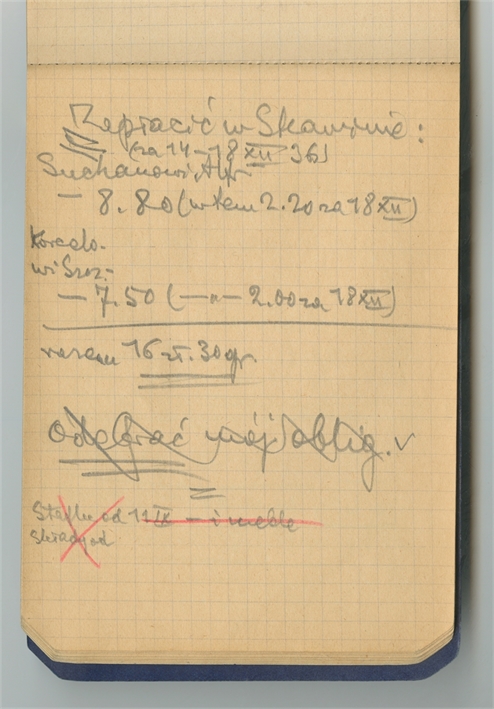 Zapłacić w Skawinie:
(za 14–18 XII 36)
Suchanowi, Alfr.
— 8.80 (w tem 2.20 za 18 XII)
Korcelo-
wi Szcz.
— 7.50 (—"— 2.00 za 18 XII)
razem 16 zł. 30 gr.
odebrać mój oblig. ✓
od 11 IX — i meble